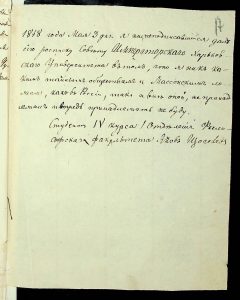 1848 года Мая 3 дня я нижеподписавшийся далъ
сію росписку Совѣту Императорскаго Харьков-
скаго Университета въ томъ, что я ни къ ка-
кимъ тайнымъ обществамъ и Массонскимъ ло-
жамъ, какъ въ Россіи, такъ и внѣ оной, не принад-
лежалъ и впредь принадлежать не буду.
Студентъ IV курса I Отдѣленія Фило-
софскаго факультета Яковъ